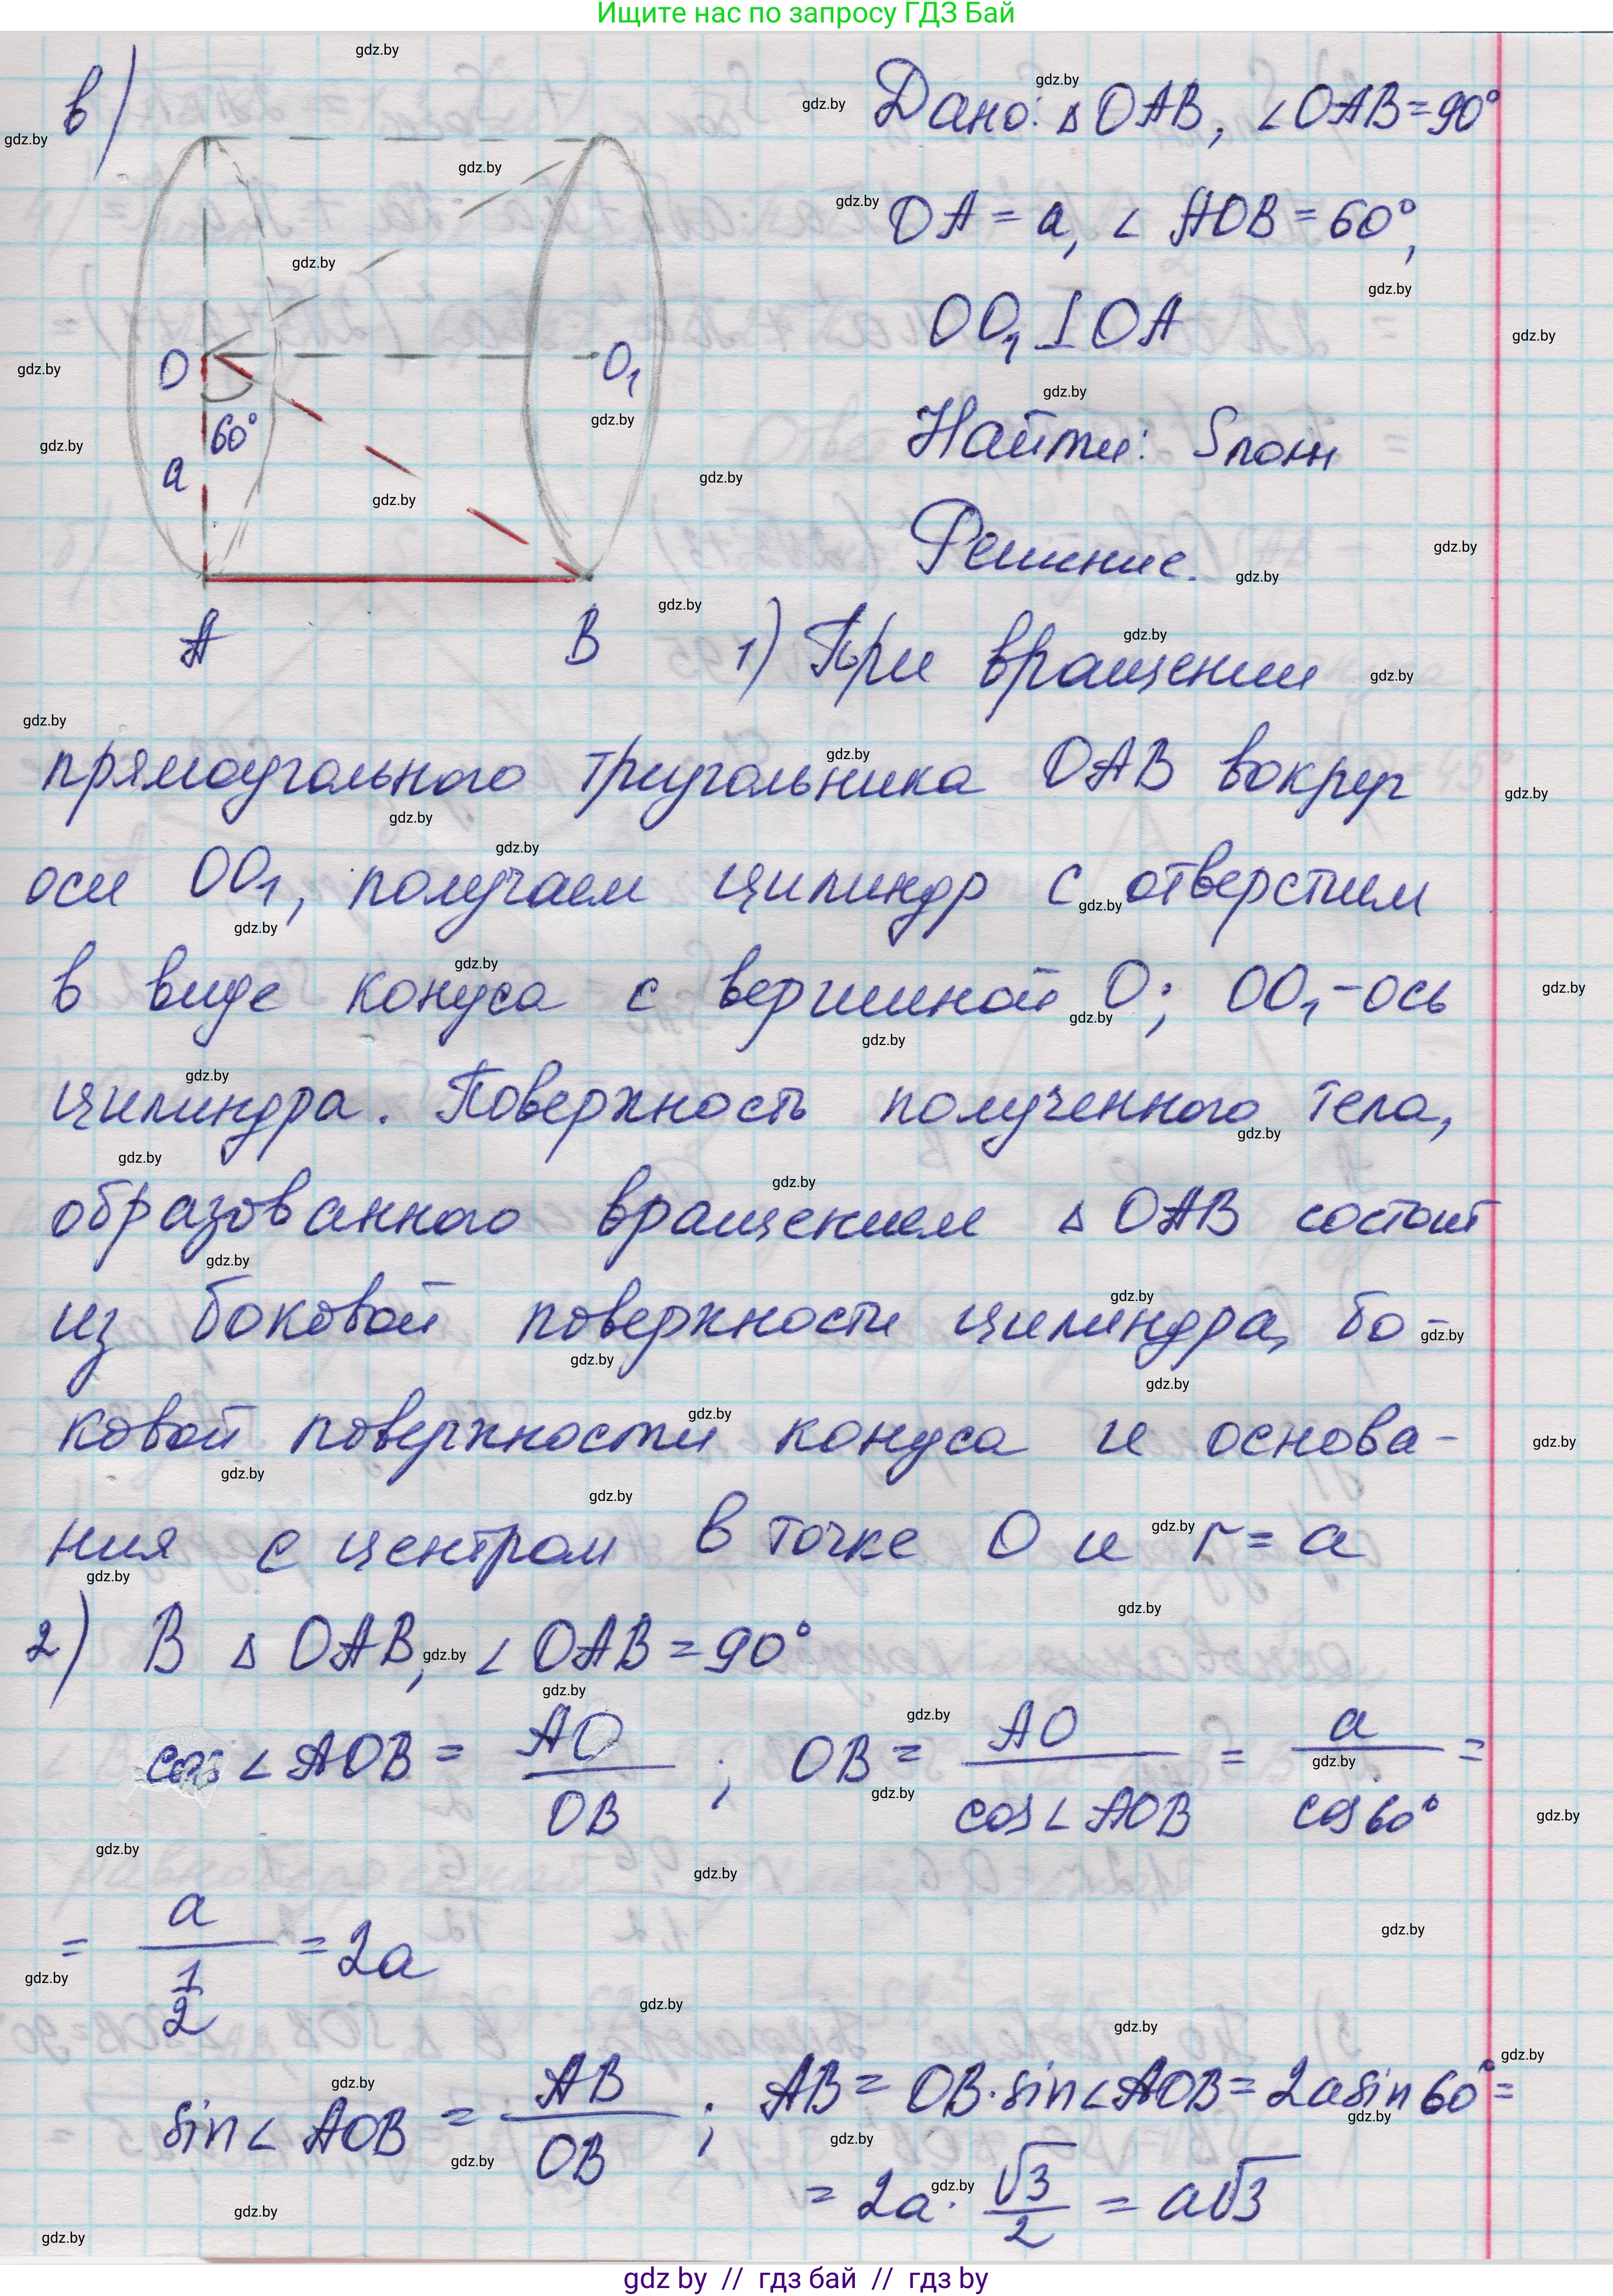 Ищите нас по запросу ГДЗ Бай
в)
Дано: △OAB, ∠OAB=90°
OA = a, ∠AOB = 60°,
OO₁ ⊥ OA
Найти: Sполн
Решение.
O
O₁
60°
a
A
B
1) При вращении
прямоугольного треугольника OAB вокруг
оси OO₁, получаем цилиндр с отверстием
в виде конуса с вершиной O; OO₁-ось
цилиндра. Поверхность полученного тела,
образованного вращением △OAB состоит
из боковой поверхности цилиндра, бо-
ковой поверхности конуса и основа-
ния с центром в точке O и r = a
2) В △OAB, ∠OAB = 90°
cos∠AOB = AO/OB ; OB = AO/cos∠AOB = a/cos60° =
= a/(1/2) = 2a
sin∠AOB = AB/OB ; AB = OB·sin∠AOB = 2a sin60° =
= 2a · √3/2 = a√3
gdz by // гдз бай // гдз by